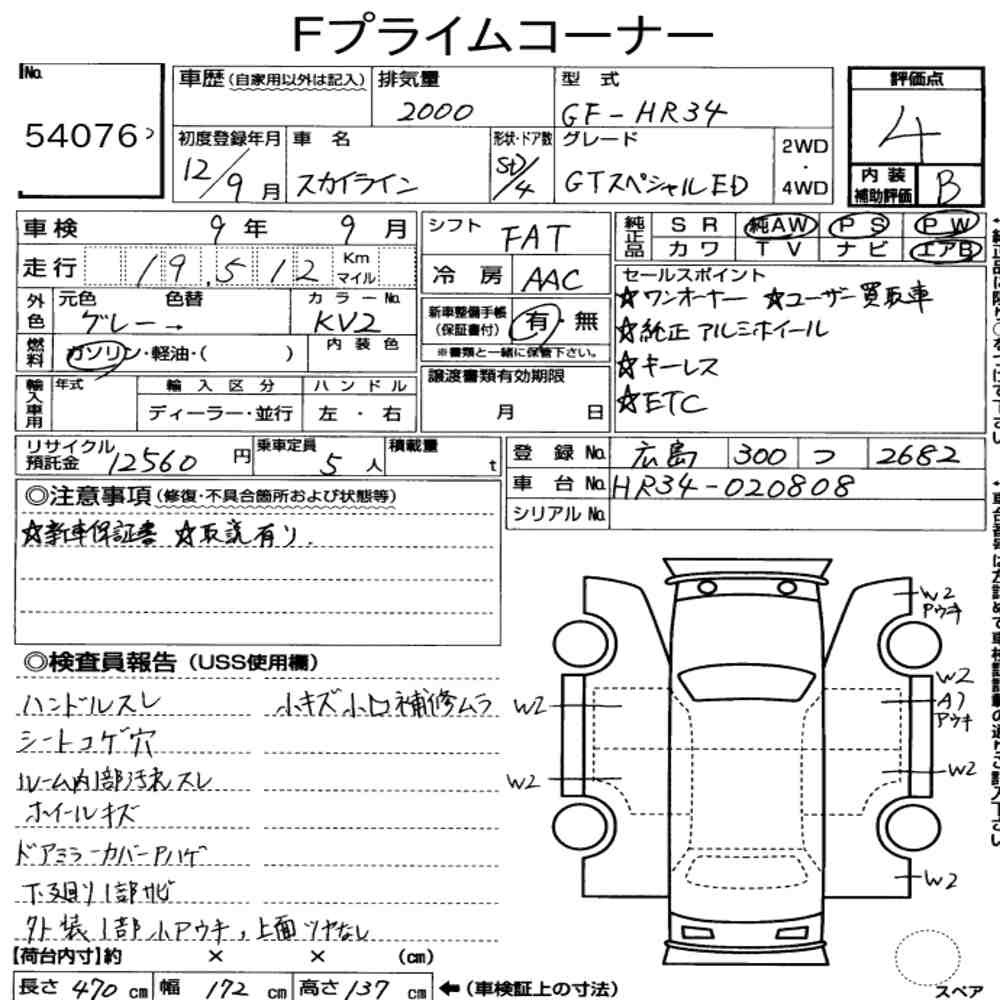 Fプライムコーナー
No.
54076
車歴(自家用以外は記入)
排気量
2000
型 式
GF-HR34
評価点
4
初度登録年月
12/9月
車 名
スカイライン
形状・ドア数
SD/4
グレード
GTスペシャルED
2WD
・
4WD
内 装
補助評価
B
車検 9年 9月
走行 19,512 Km マイル
外色
元色 色替
グレー→
カラーNo.
KV2
燃料
ガソリン・軽油・( )
内 装 色
輸入車用
年式
輸 入 区 分
ディーラー・並行
ハ ン ド ル
左 ・ 右
シフト FAT
冷 房 AAC
新車整備手帳
(保証書付)
有・無
※書類と一緒に保管下さい。
譲渡書類有効期限
月 日
純正品
S R 純AW P S P W
カ ワ T V ナ ビ エアB
セールスポイント
☆ワンオーナー ☆ユーザー買取車
☆純正アルミホイール
☆キーレス
☆ETC
リサイクル
預託金 12560 円
乗車定員
5 人
積載量
t
登 録 No. 広島 300 つ 2682
車 台 No. HR34-020808
シリアル No.
◎注意事項(修復・不具合箇所および状態等)
☆新車保証書 ☆取説有り.
◎検査員報告(USS使用欄)
ハンドルスレ 小キズ小凹補修ムラ
シートコゲ穴
ルーム内1部汚れスレ
ホイールキズ
ドアミラーカバーPハゲ
下廻り1部サビ
外装1部小Pウキ,上面ツヤなし
W2
Pウキ
W2
A1
Pウキ
W2
W2
W2
W2
スペア
【荷台内寸】約 × × (cm)
長さ 470 cm 幅 172 cm 高さ 137 cm ←(車検証上の寸法)